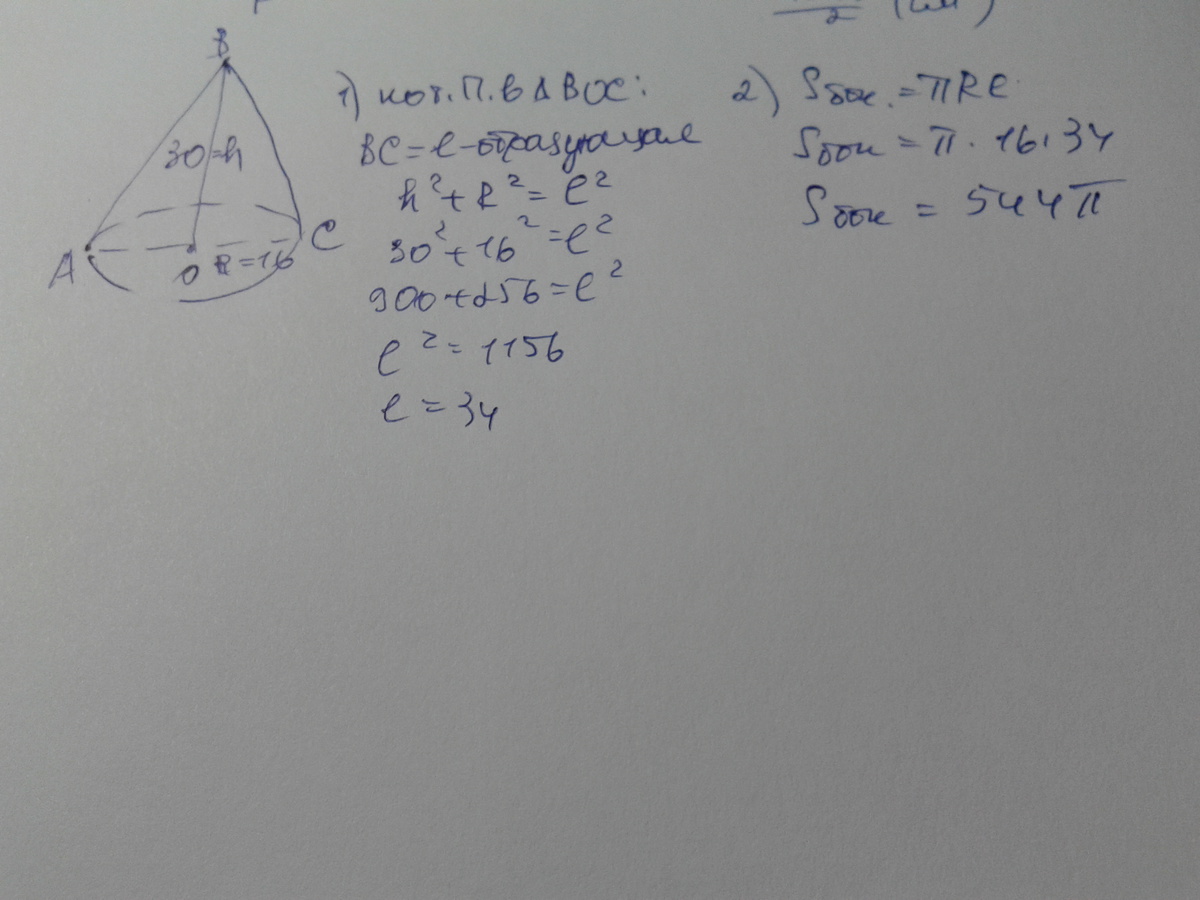 2 (см)
B
30=h
A
O R=16
C
1) по т.П. в ΔBOC:
BC=l-образующая
h²+R²=l²
30²+16²=l²
900+256=l²
l²=1156
l=34
2) Sбок.=πRl
Sбок=π·16·34
Sбок=544π